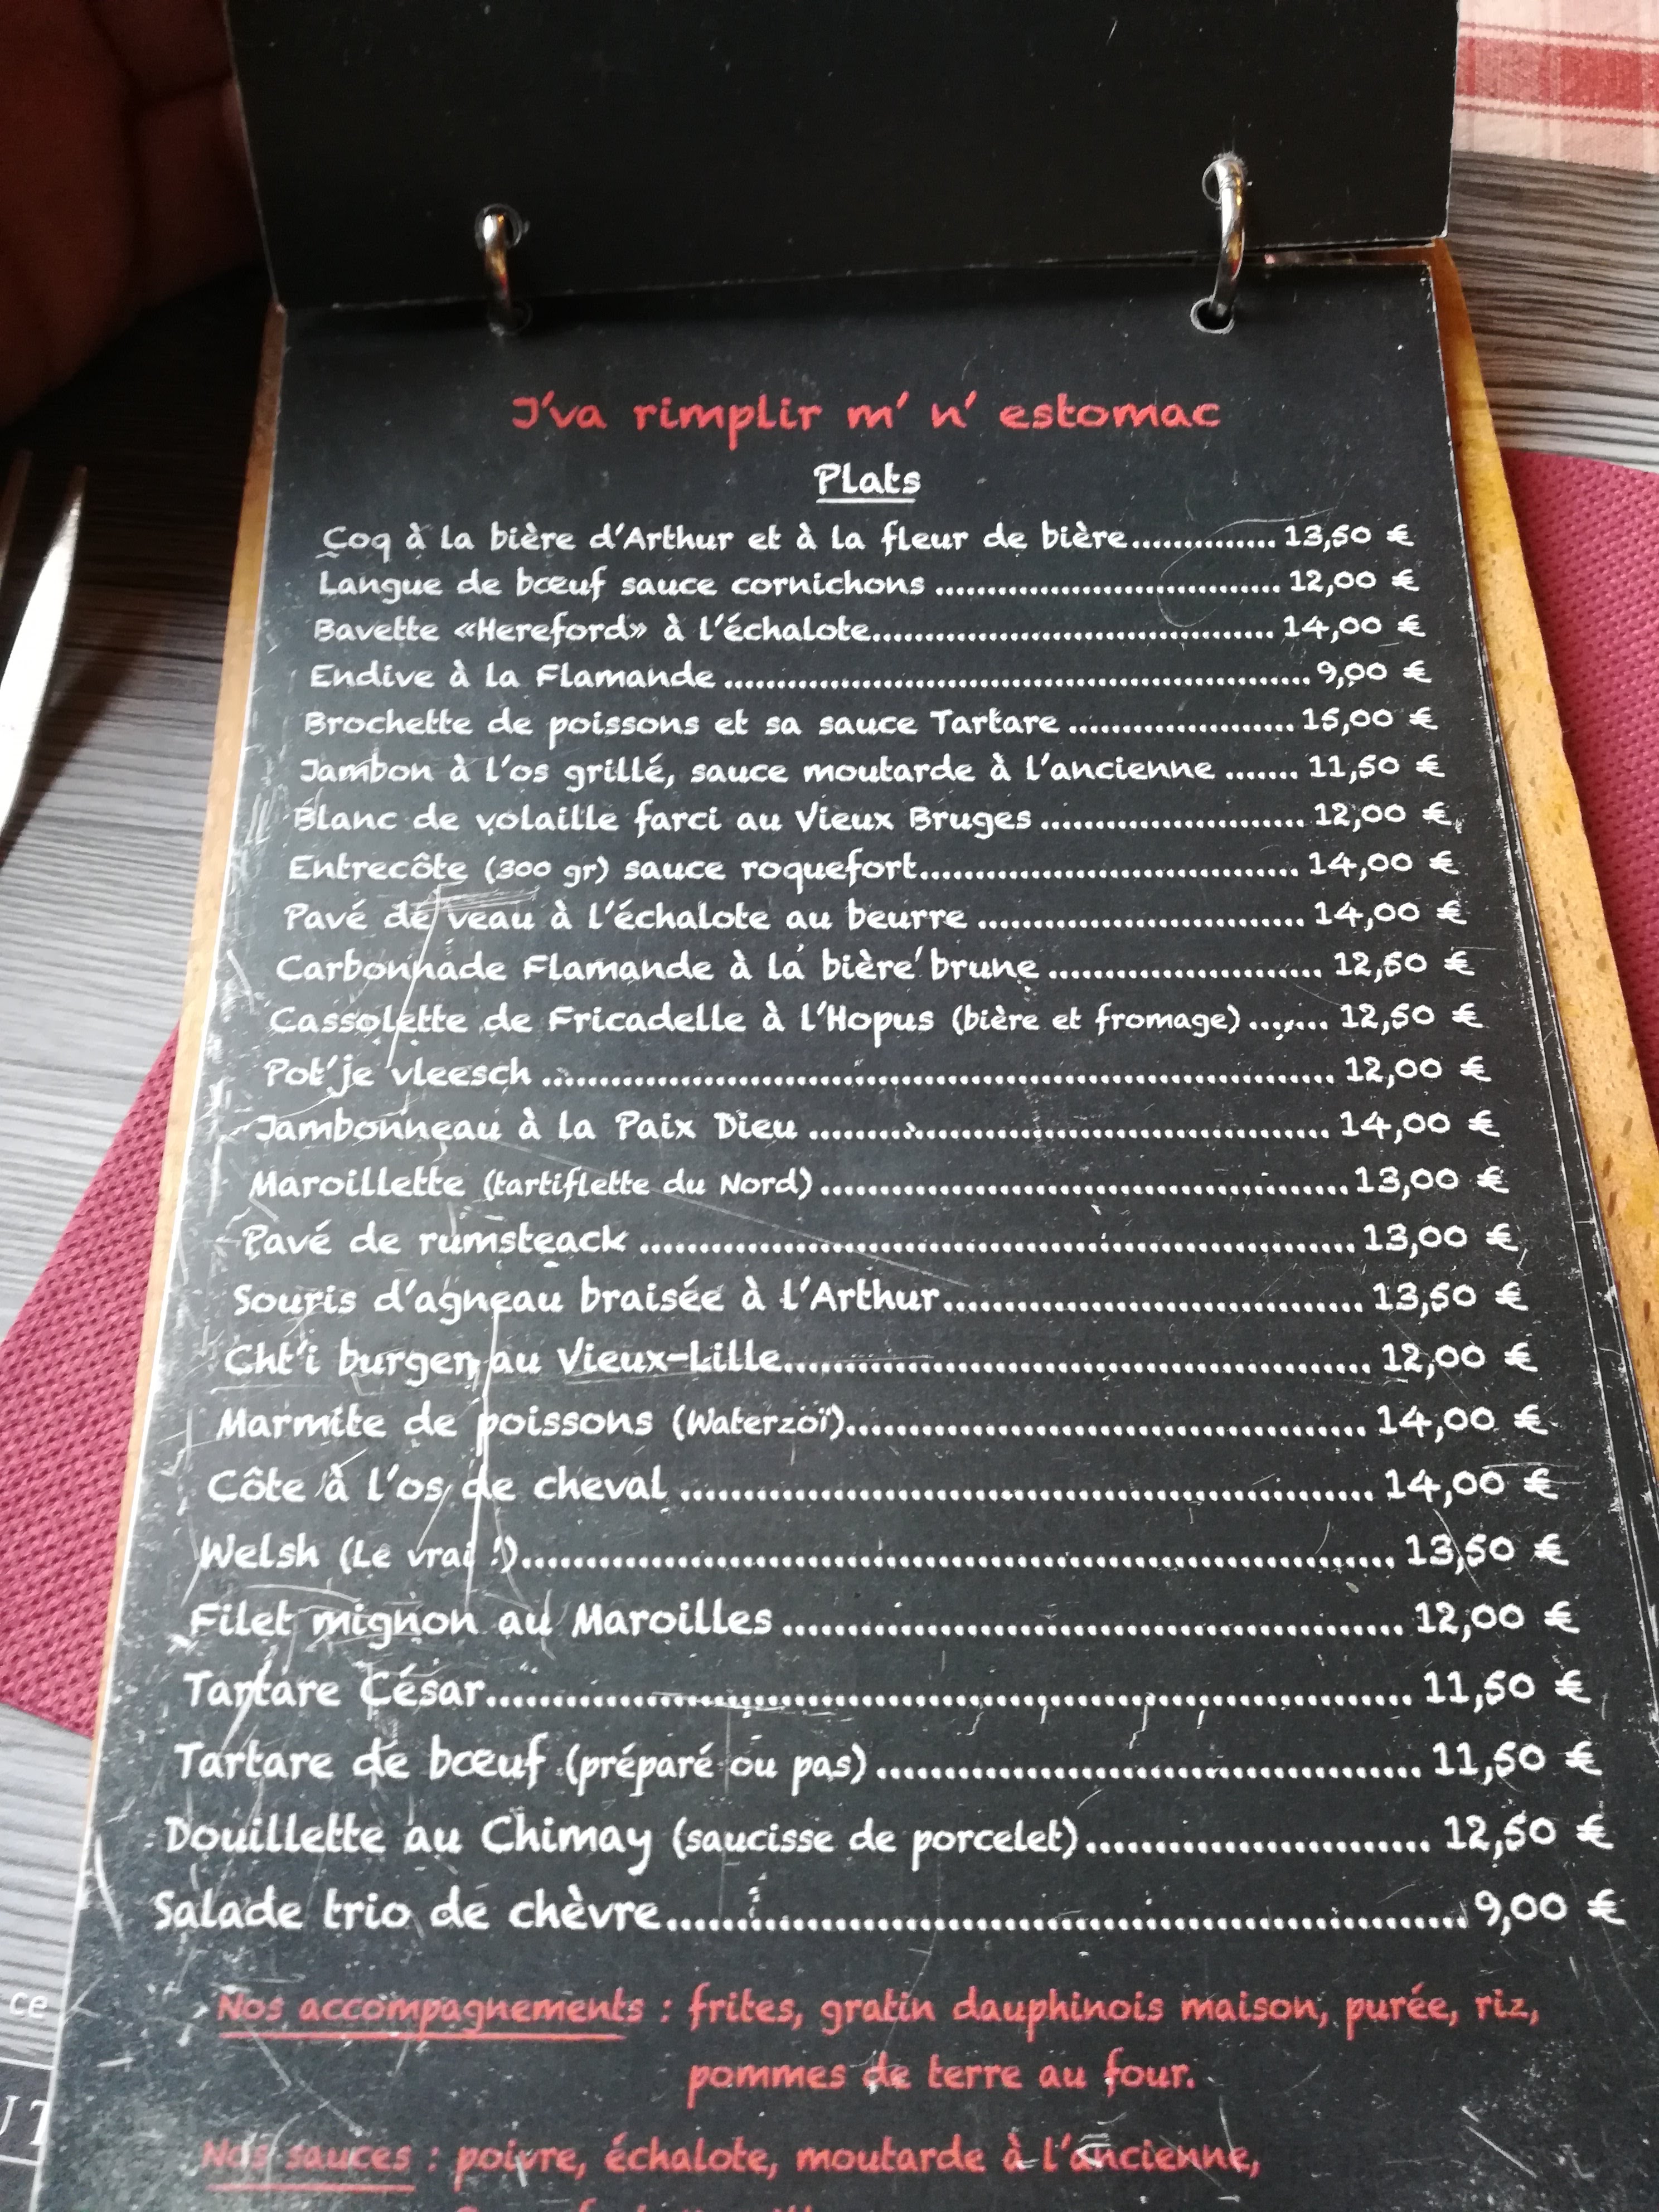 J'va rimplir m' n' estomac
Plats
Coq à la bière d'Arthur et à la fleur de bière.............. 13,50 €
Langue de bœuf sauce cornichons ................................. 12,00 €
Bavette «Hereford» à l'échalote...................................... 14,00 €
Endive à la Flamande .......................................................9,00 €
Brochette de poissons et sa sauce Tartare ..................... 15,00 €
Jambon à l'os grillé, sauce moutarde à l'ancienne ....... 11,50 €
Blanc de volaille farci au Vieux Bruges ......................... 12,00 €
Entrecôte (300 gr) sauce roquefort.................................... 14,00 €
Pavé de veau à l'échalote au beurre ............................... 14,00 €
Carbonnade Flamande à la bière brune .......................... 12,50 €
Cassolette de Fricadelle à l'Hopus (bière et fromage) ....... 12,50 €
Pot'je vleesch ........................................................................ 12,00 €
Jambonneau à la Paix Dieu ............................................... 14,00 €
Maroillette (tartiflette du Nord) ............................................... 13,00 €
Pavé de rumsteack ............................................................... 13,00 €
Souris d'agneau braisée à l'Arthur..................................... 13,50 €
Cht'i burger au Vieux-Lille.................................................. 12,00 €
Marmite de poissons (Waterzoï)............................................ 14,00 €
Côte à l'os de cheval ........................................................... 14,00 €
Welsh (Le vrai !)....................................................................... 13,50 €
Filet mignon au Maroilles ................................................... 12,00 €
Tartare César......................................................................... 11,50 €
Tartare de bœuf (préparé ou pas) ......................................... 11,50 €
Douillette au Chimay (saucisse de porcelet)......................... 12,50 €
Salade trio de chèvre.............................................................9,00 €
Nos accompagnements : frites, gratin dauphinois maison, purée, riz,
pommes de terre au four.
Nos sauces : poivre, échalote, moutarde à l'ancienne,
ce